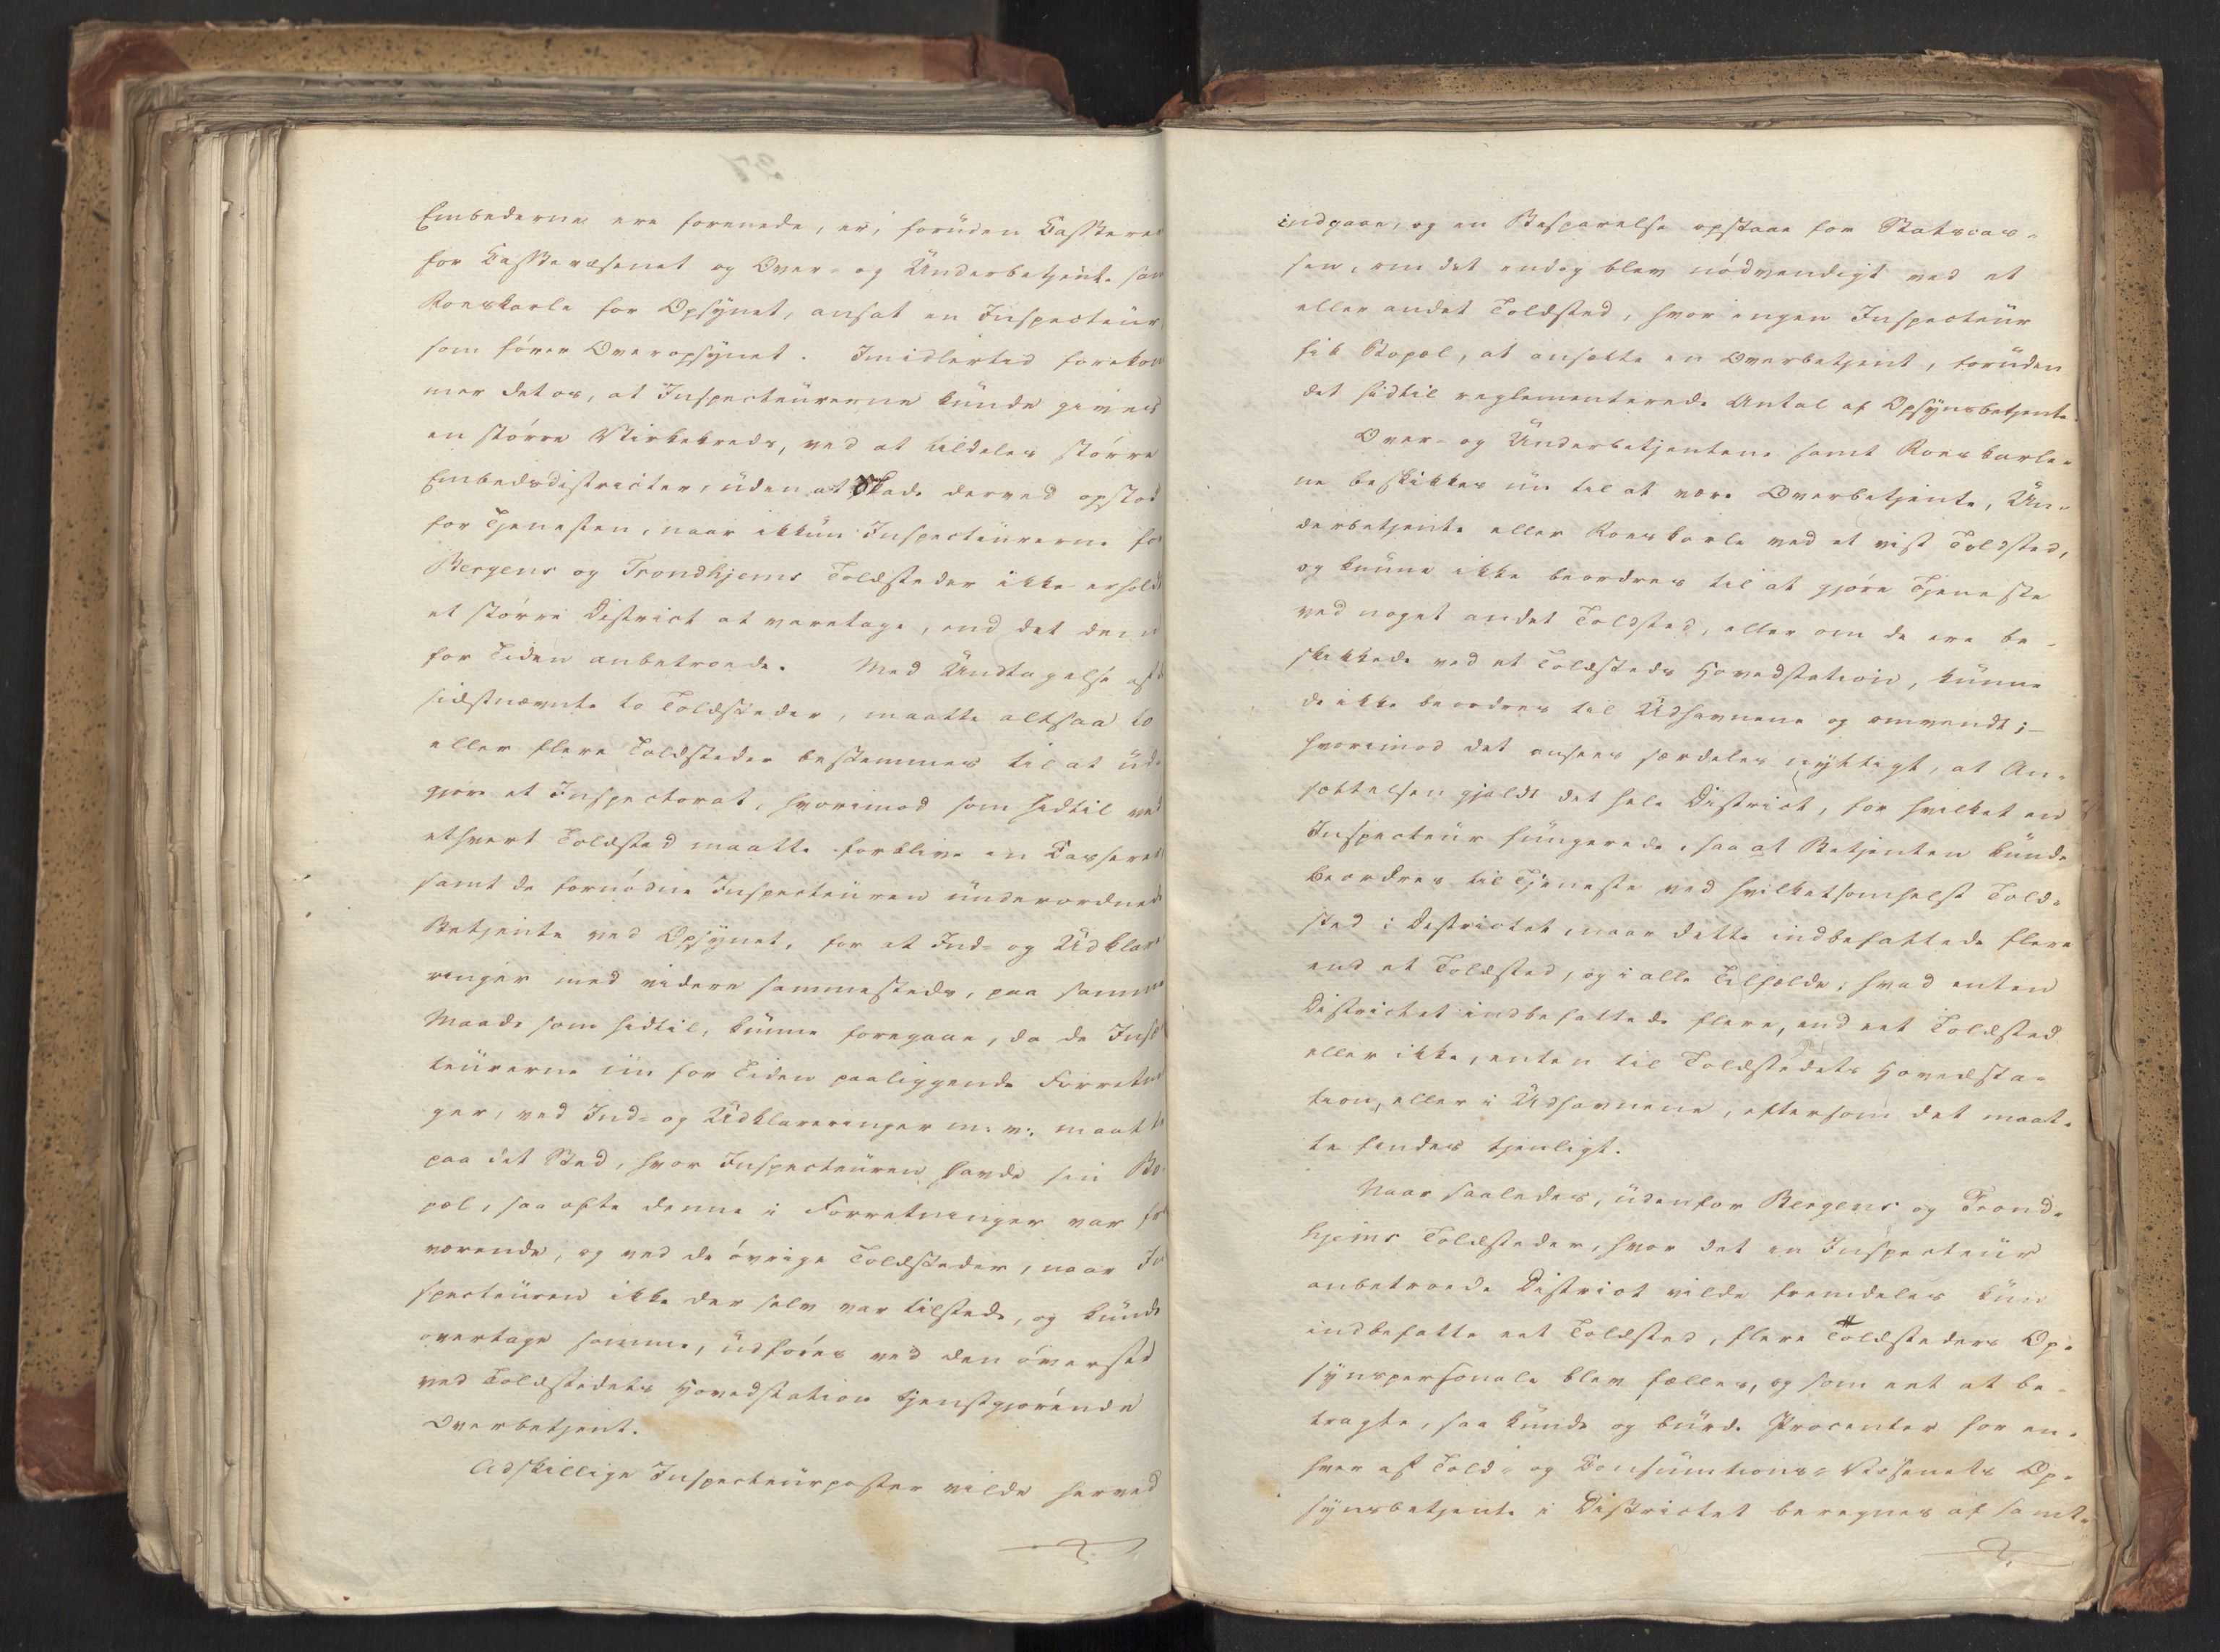 Embederne ere forenede, er, foruden Casserer
for Cassevæsenet og Over- og Underbetjente samt
Roerskarle for Opsynet, ansat en Inspecteur
som fører Overopsynet. Imidlertid forekom
mer det os, at Inspecteurerne kunde gives
en større Virkekreds, ved at tildeles større
Embedsdistricter, uden at Skade derved opstod
for Tjenesten, naar ikkun Inspecteurerne for
Bergens og Trondhjems Toldsteder ikke erholdt
et større District at varetage, end det dem
for Tiden anbetroede. Med Undtagelse af de
sidstnævnte to Toldsteder, maatte altsaa to
eller flere Toldsteder bestemmes til at ud-
gjøre et Inspectorat, hvorimod som hidtil ved
ethvert Toldsted maatte forblive en Casserer
samt de fornødne Inspecteuren underordnede
Betjente ved Opsynet, for at Ind- og Udklare
ringer med videre sammesteds, paa samme
Maade som hidtil, kunne foregaae, da de Inspec
teurerne nu for Tiden paaliggende Forretnin
ger, ved Ind- og Udklareringer m: v: maatte
paa det Sted, hvor Inspecteuren havde sin Bo-
pæl, saa ofte denne i Forretninger var fra
værende, og ved de øvrige Toldsteder, naar In
specteuren ikke der selv var tilstede, og kunde
overtage samme, udføres ved den øverste
ved Toldstedets Hovedstation tjenstgjørende
Overbetjent.
Adskillige Inspecteurposter vilde herved
indgaae, og en Besparelse opstaae for Statscas-
sen, om det endog blev nødvendigt ved et
eller andet Toldsted, hvor ingen Inspecteur
fik Bopæl, at ansætte en Overbetjent, foruden
det hidtil reglementerede Antal af Opsynsbetjente.
Over- og Underbetjentene samt Roerskarle-
ne beskikkes nu til at være Overbetjente, Un-
derbetjente eller Roerskarle ved et vist Toldsted,
og kunne ikke beordres til at gjøre Tjeneste
ved noget andet Toldsted, eller om de ere be-
skikkede ved et Toldsteds Hovedstation, kunne
de ikke beordres til Udhavnene og omvendt;-
hvorimod det ansees særdeles nyttigt, at An-
sættelsen gjaldt det hele District, for hvilket en
Inspecteur fungerede, saa at Betjenten kunde
beordres til Tjeneste ved hvilketsomhelst Told-
sted i Districtet, naar dette indbefattede flere
end et Toldsted, og i alle Tilfælde, hvad enten
Districtet indbefattede flere, end eet Toldsted
eller ikke, enten til Toldstedets Hovedsta-
tion, eller i Udhavnene, eftersom det maat-
te findes tjenligt.
Naar saaledes, udenfor Bergens og Trond-
hjems Toldsteder, hvor det en Inspecteur
anbetroede District vilde fremdeles kun
indbefatte eet Toldsted, flere Toldsteders Op-
synspersonale blev fælles, og som eet at be-
tragte, saa kunde og burde Procenter for en-
hver af Told- og Consumtions-Væsenets Op-
synsbetjente i Districtet beregnes af samt-